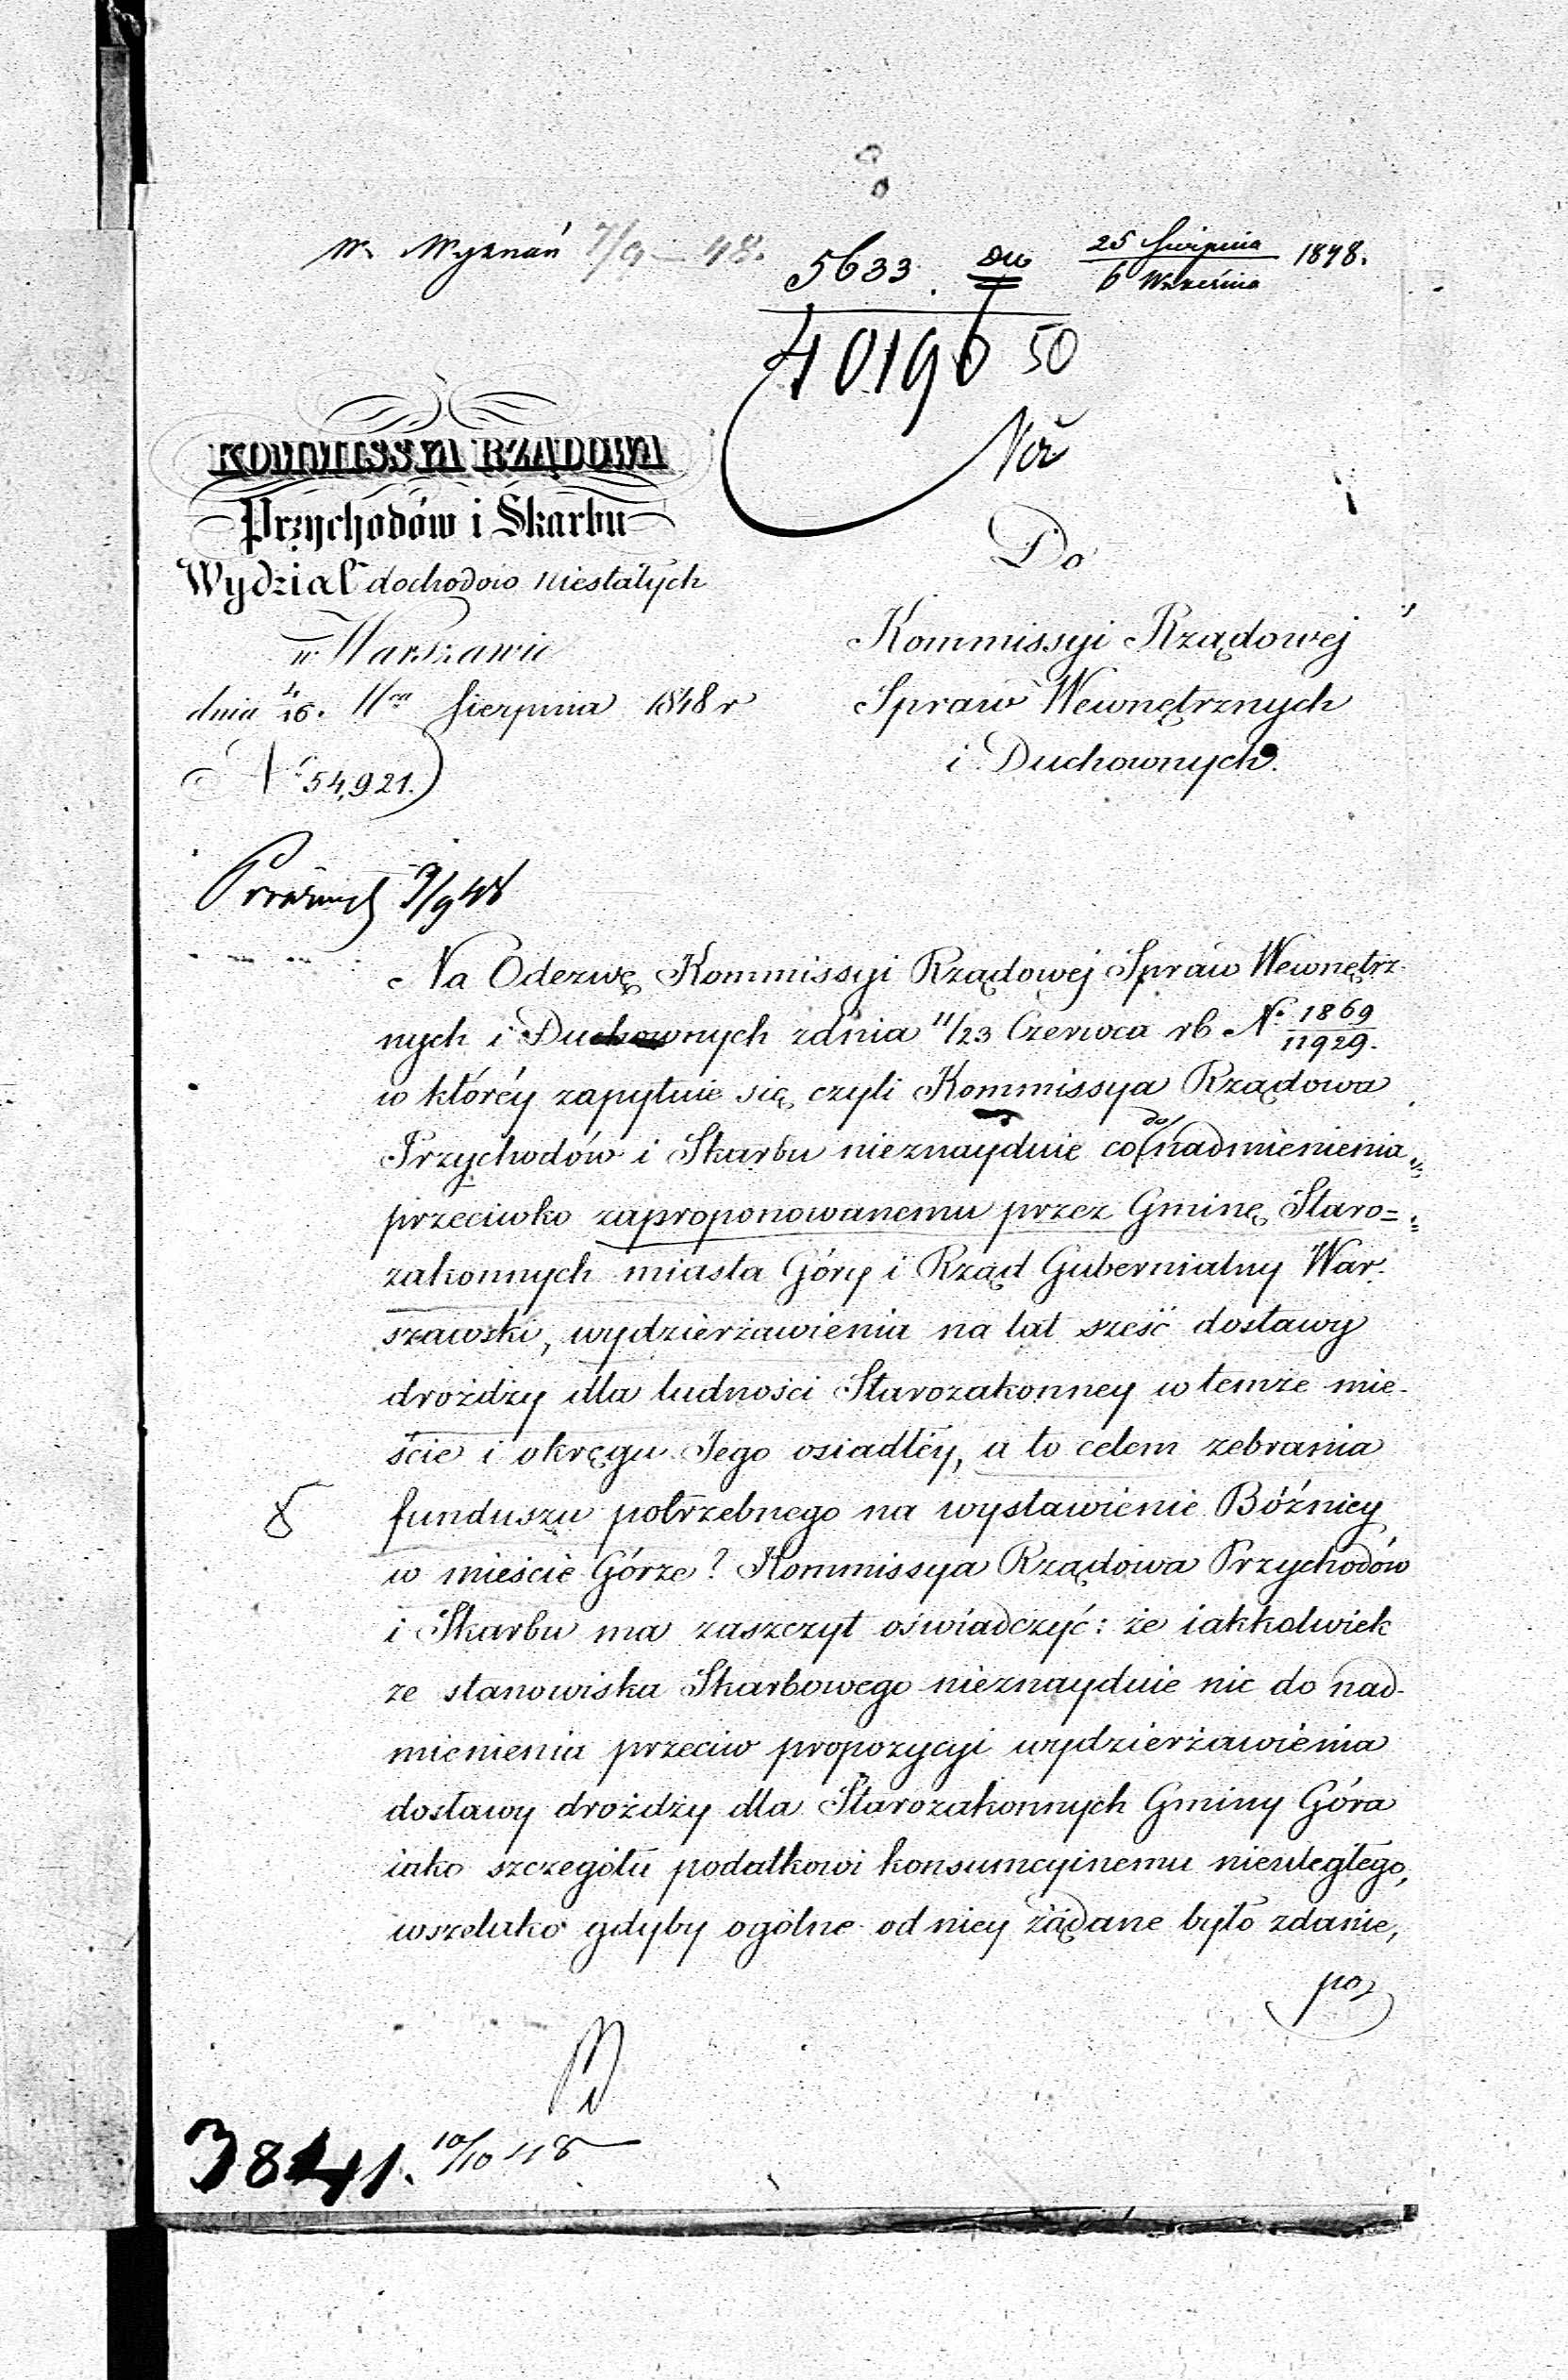 W. Wyznań 7/9 – 48.
5633. 25 Sierpnia / 6 Września 1848.
40196 50
KOMMISSYA RZĄDOWA
Przychodów i Skarbu
Wydział dochodów niestałych
w Warszawie
dnia 4/16. Sierpnia 1848 r
No 54,921.
Do
Kommissyi Rządowej
Spraw Wewnętrznych
i Duchownych.
9/9 48
Na Odezwę Kommissyi Rządowej Spraw Wewnętrz-
nych i Duchownych zdnia 11/23 Czerwca rb No 1869/11929.
w któréy zapytuie się, czyli Kommissya Rządowa
Przychodów i Skarbu nieznayduie co do nadmienienia
przeciwko zaproponowanemu przez Gminę Staro=
zakonnych miasta Góry i Rząd Gubernialny War-
szawski, wydzierżawieniu na lat sześć dostawy
drożdży dla ludności Starozakonney w temże mie-
ście i okręgu Jego osiadłéy, a to celem zebrania
funduszu potrzebnego na wystawienie Bóżnicy
w mieście Górze? Kommissya Rządowa Przychodów
i Skarbu ma zaszczyt oświadczyć: że iakkolwiek
ze stanowiska Skarbowego nieznayduie nic do nad-
mienienia przeciw propozycyi wydzierżawienia
dostawy drożdży dla Starozakonnych Gminy Góra
iako szczegółu podatkowi konsumcyinemu nieuległego,
wszelako gdyby ogólne od niey żądane było zdanie,
po
3841. 10/10 48